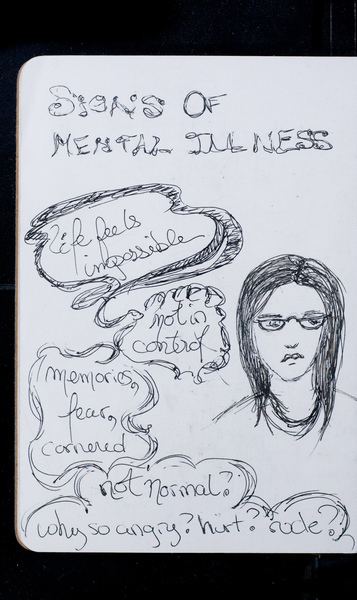 SIGNS OF
MENTAL ILLNESS
life feels
impossible
not in
control
memories,
fear,
cornered
not normal?
why so angry? hurt? rude?